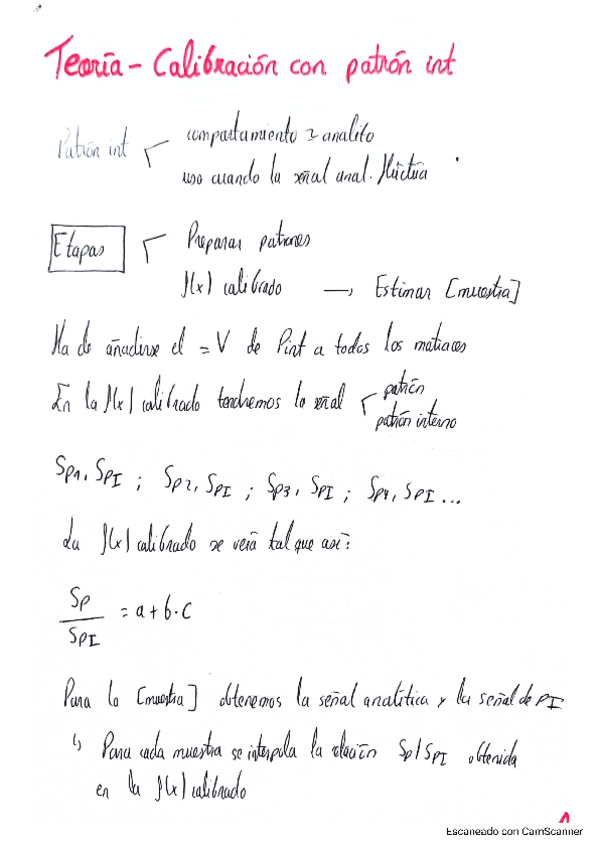 Teoría - Calibración con patrón int
Patrón int
comportamiento ≈ analito
uso cuando la señal anal. fluctúa
Etapas
Preparar patrones
f(x) calibrado → Estimar [muestra]
Ha de añadirse el = V de Pint a todos los matraces
En la f(x) calibrado tendremos la señal
patrón
patrón interno
Sp1, SPI ; Sp2, SPI ; Sp3, SPI ; Sp4, SPI ...
La f(x) calibrado se verá tal que así:
Sp
SPI
= a + b · c
Para la [muestra] obtenemos la señal analítica y la señal de PI
↳ Para cada muestra se interpola la relación Sp/SPI obtenida
en la f(x) calibrado
1
Escaneado con CamScanner